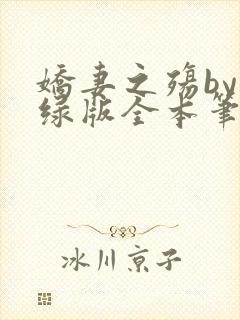 嬌妻之殤by
绿版全本筆
冰川京子